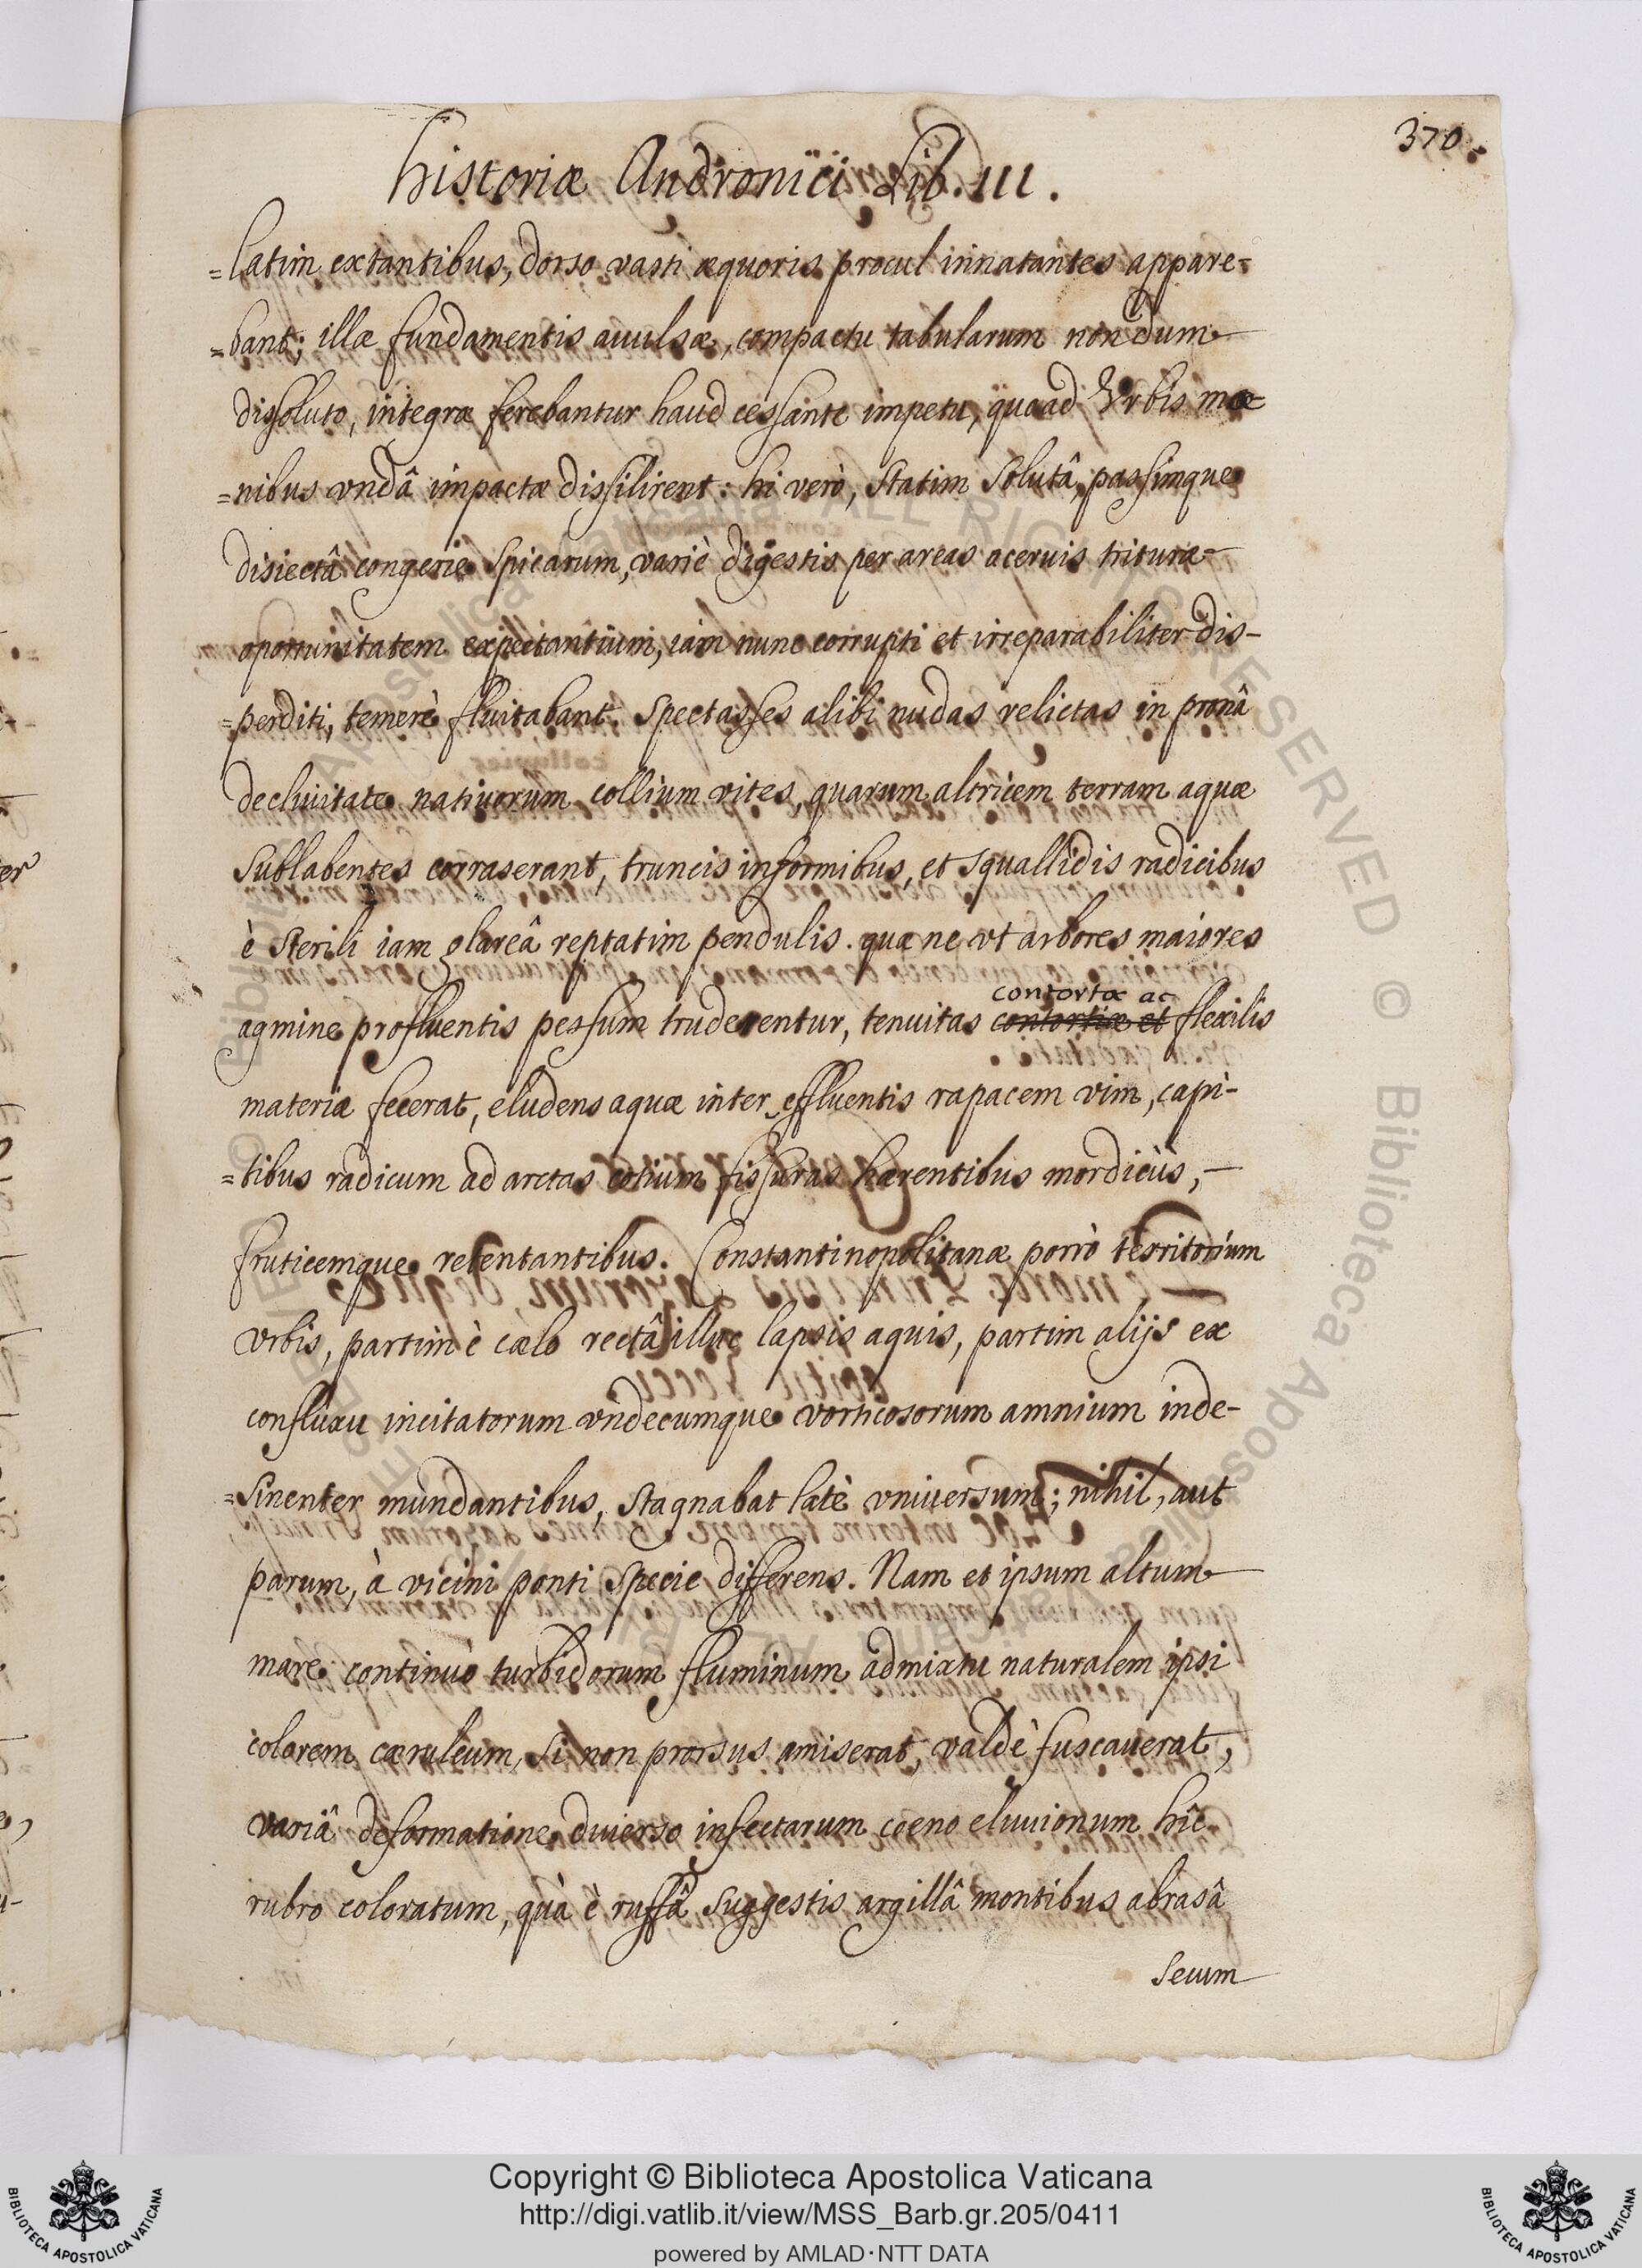 370.
historiæ Andronici Lib. III.
=latim extantibus, dorso vasti æquoris procul innatantes appare=
=bant; illæ fundamentis auulsæ, compactu tabularum nondum
dissoluto, integræ ferebantur haud cessante impetu, quoad Vrbis mœ
=nibus vndâ impactæ dissilirent: hi verò, statim solutâ, passimque
disiectâ congerie spicarum, variè digestis per areas aceruis trituræ
oportunitatem expectantium, iam nunc corrupti et irreparabiliter dis-
=perditi, temerè fluitabant. Spectasses alibi nudas relictas in pronâ
decliuitate natiuorum collium vites, quarum altricem terram aquæ
sublabentes corraserant, truncis informibus, et squallidis radicibus
è sterili iam glareâ reptatim pendulis. quæ ne vt arbores maiores
contortæ ac
agmine profluentis pessum truderentur, tenuitas contortiæ et flexilis
materiæ fecerat, eludens aquæ inter effluentis rapacem vim, capi-
=tibus radicum ad arctas cotium fissuras hærentibus mordicùs,
fruticemque retentantibus. Constantinopolitanæ porrò territorium
vrbis, partim è cælo rectâ illuc lapsis aquis, partim alijs ex
confluxu incitatorum vndecumque vorticosorum amnium inde-
=sinenter inundantibus, stagnabat latè vniuersum; nihil, aut
parum, à vicini ponti specie differens. Nam et ipsum altum
mare continuo turbidorum fluminum admixtu naturalem ipsi
colorem cæruleum, si non prorsus amiserat, valdè fuscauerat,
variâ deformatione, diuerso infectarum coeno eluuionum hîc
rubro coloratum, quà è ruffâ suggestis argillâ montibus abrasâ
secum
Copyright © Biblioteca Apostolica Vaticana
http://digi.vatlib.it/view/MSS_Barb.gr.205/0411
powered by AMLAD·NTT DATA
BIBLIOTECA APOSTOLICA VATICANA
BIBLIOTECA APOSTOLICA VATICANA